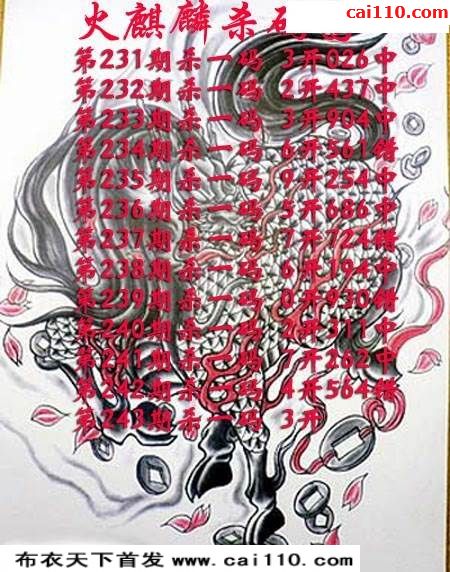 www.cai110.com
cai110.com
火麒麟杀码
第231期杀一码 3开026中
第232期杀一码 2开437中
第233期杀一码 3开904中
第234期杀一码 6开561错
第235期杀一码 9开254中
第236期杀一码 5开686中
第237期杀一码 7开724错
第238期杀一码 6开194中
第239期杀一码 0开930错
第240期杀一码 2开311中
第241期杀一码 7开262中
第242期杀一码 4开564错
第243期杀一码 3开
布衣天下首发 www.cai110.com